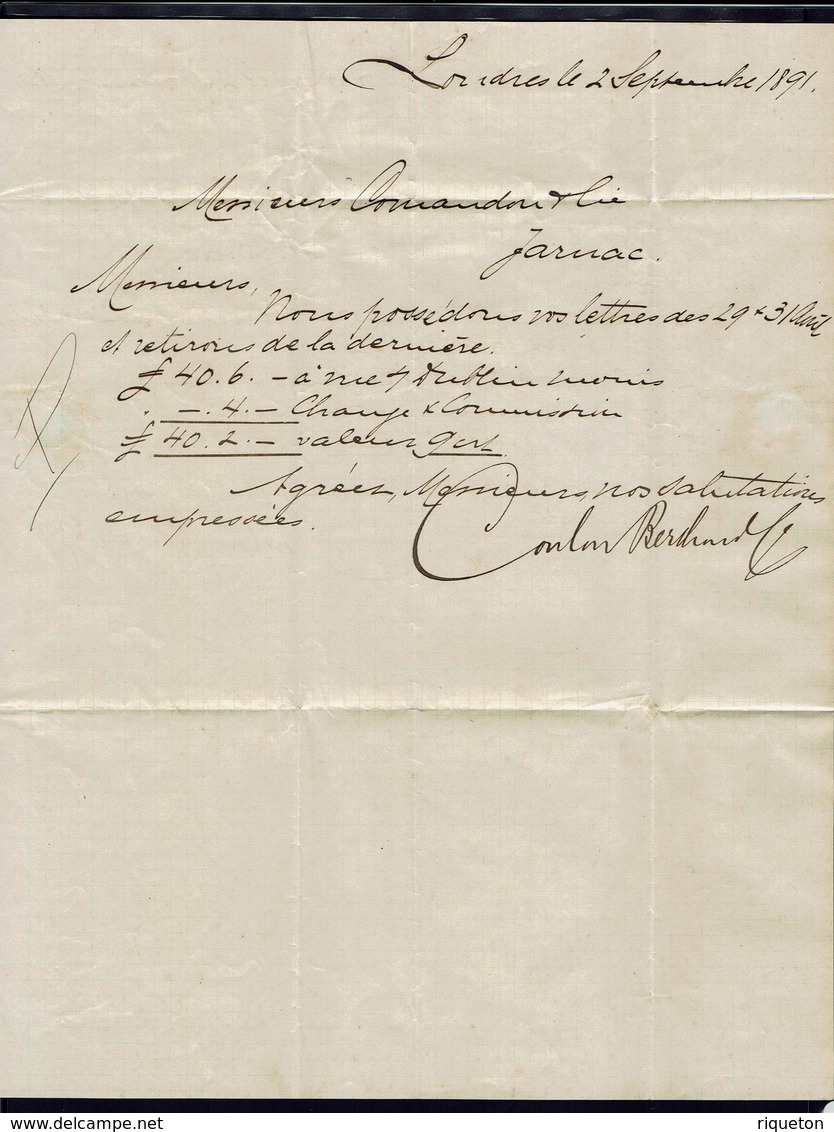 Londres le 2 Septembre 1891.
Messieurs Comandon & Cie
Jarnac.
Messieurs,
Nous possédons vos lettres des 29 & 31
et retirons de la dernière.
£ 40.6. – à vue s/ Dublin moins
. – . 4. – Change & Commission
£ 40.2. – valeur 9 ct.
Agréez, Messieurs, nos salutations
empressées.
Coulon Berthoud & Co
www.delcampe.net
riqueton